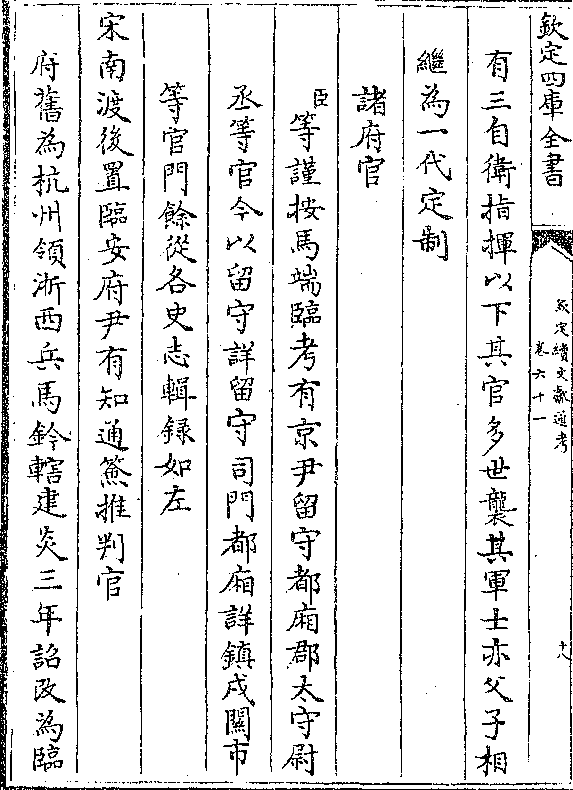 欽定四庫全書
欽定續文獻通考
卷六十一
十八
有三自衛指揮以下其官多世襲其軍士亦父子相
繼為一代定制
諸府官
臣等謹按馬端臨考有京尹留守都廂郡太守尉
丞等官今以留守詳留守司門都廂詳鎮戍關市
等官門餘從各史志輯録如左
宋南渡後置臨安府尹有知通簽推判官
府舊為杭州領浙西兵馬鈐轄建炎三年詔改為臨